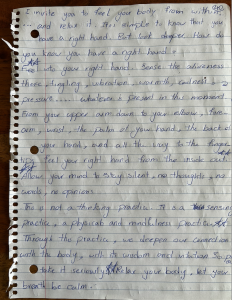 I invite you to feel your body from within
and relax it. It's simple to know that you
have a right hand. But look deeper. How do
you know you have a right hand?
into your right hand. Sense the aliveness
there, tingling, vibration, warmth, coolness,
pressure... whatever is present in this moment.
From your upper arm down to your elbow, fore
arm, wrist, the palm of your hand, the back of
your hand, and all the way to the finger
tips. Feel your right hand from the inside out.
Allow your mind to stay silent, no thoughts, no
words or opinions.
This is not a thinking practice. It is a sensing
practice, a physical and mindfulness practice.
Through the practice, we deepen our connection
with the body, with the wisdom and
take it seriously. Relax your body, let your
breath be calm.